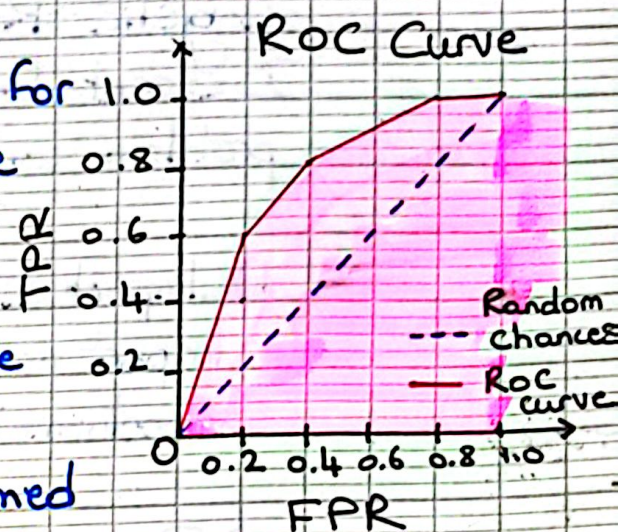 ROC Curve
for
1.0
0.8
0.6
TPR
0.4
0.2
0
0.2 0.4 0.6 0.8 1.0
FPR
Random
chances
ROC
curve